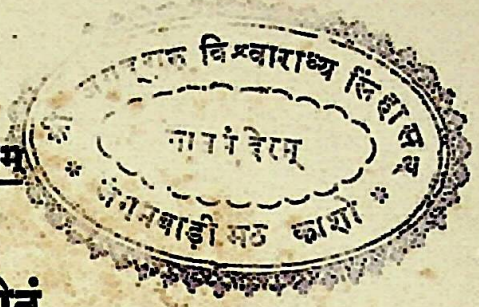 जगद्गुरु विश्वाराध्य सिंहासन
ज्ञानमंदिरम्
* जंगमवाड़ी मठ काशी *
म्